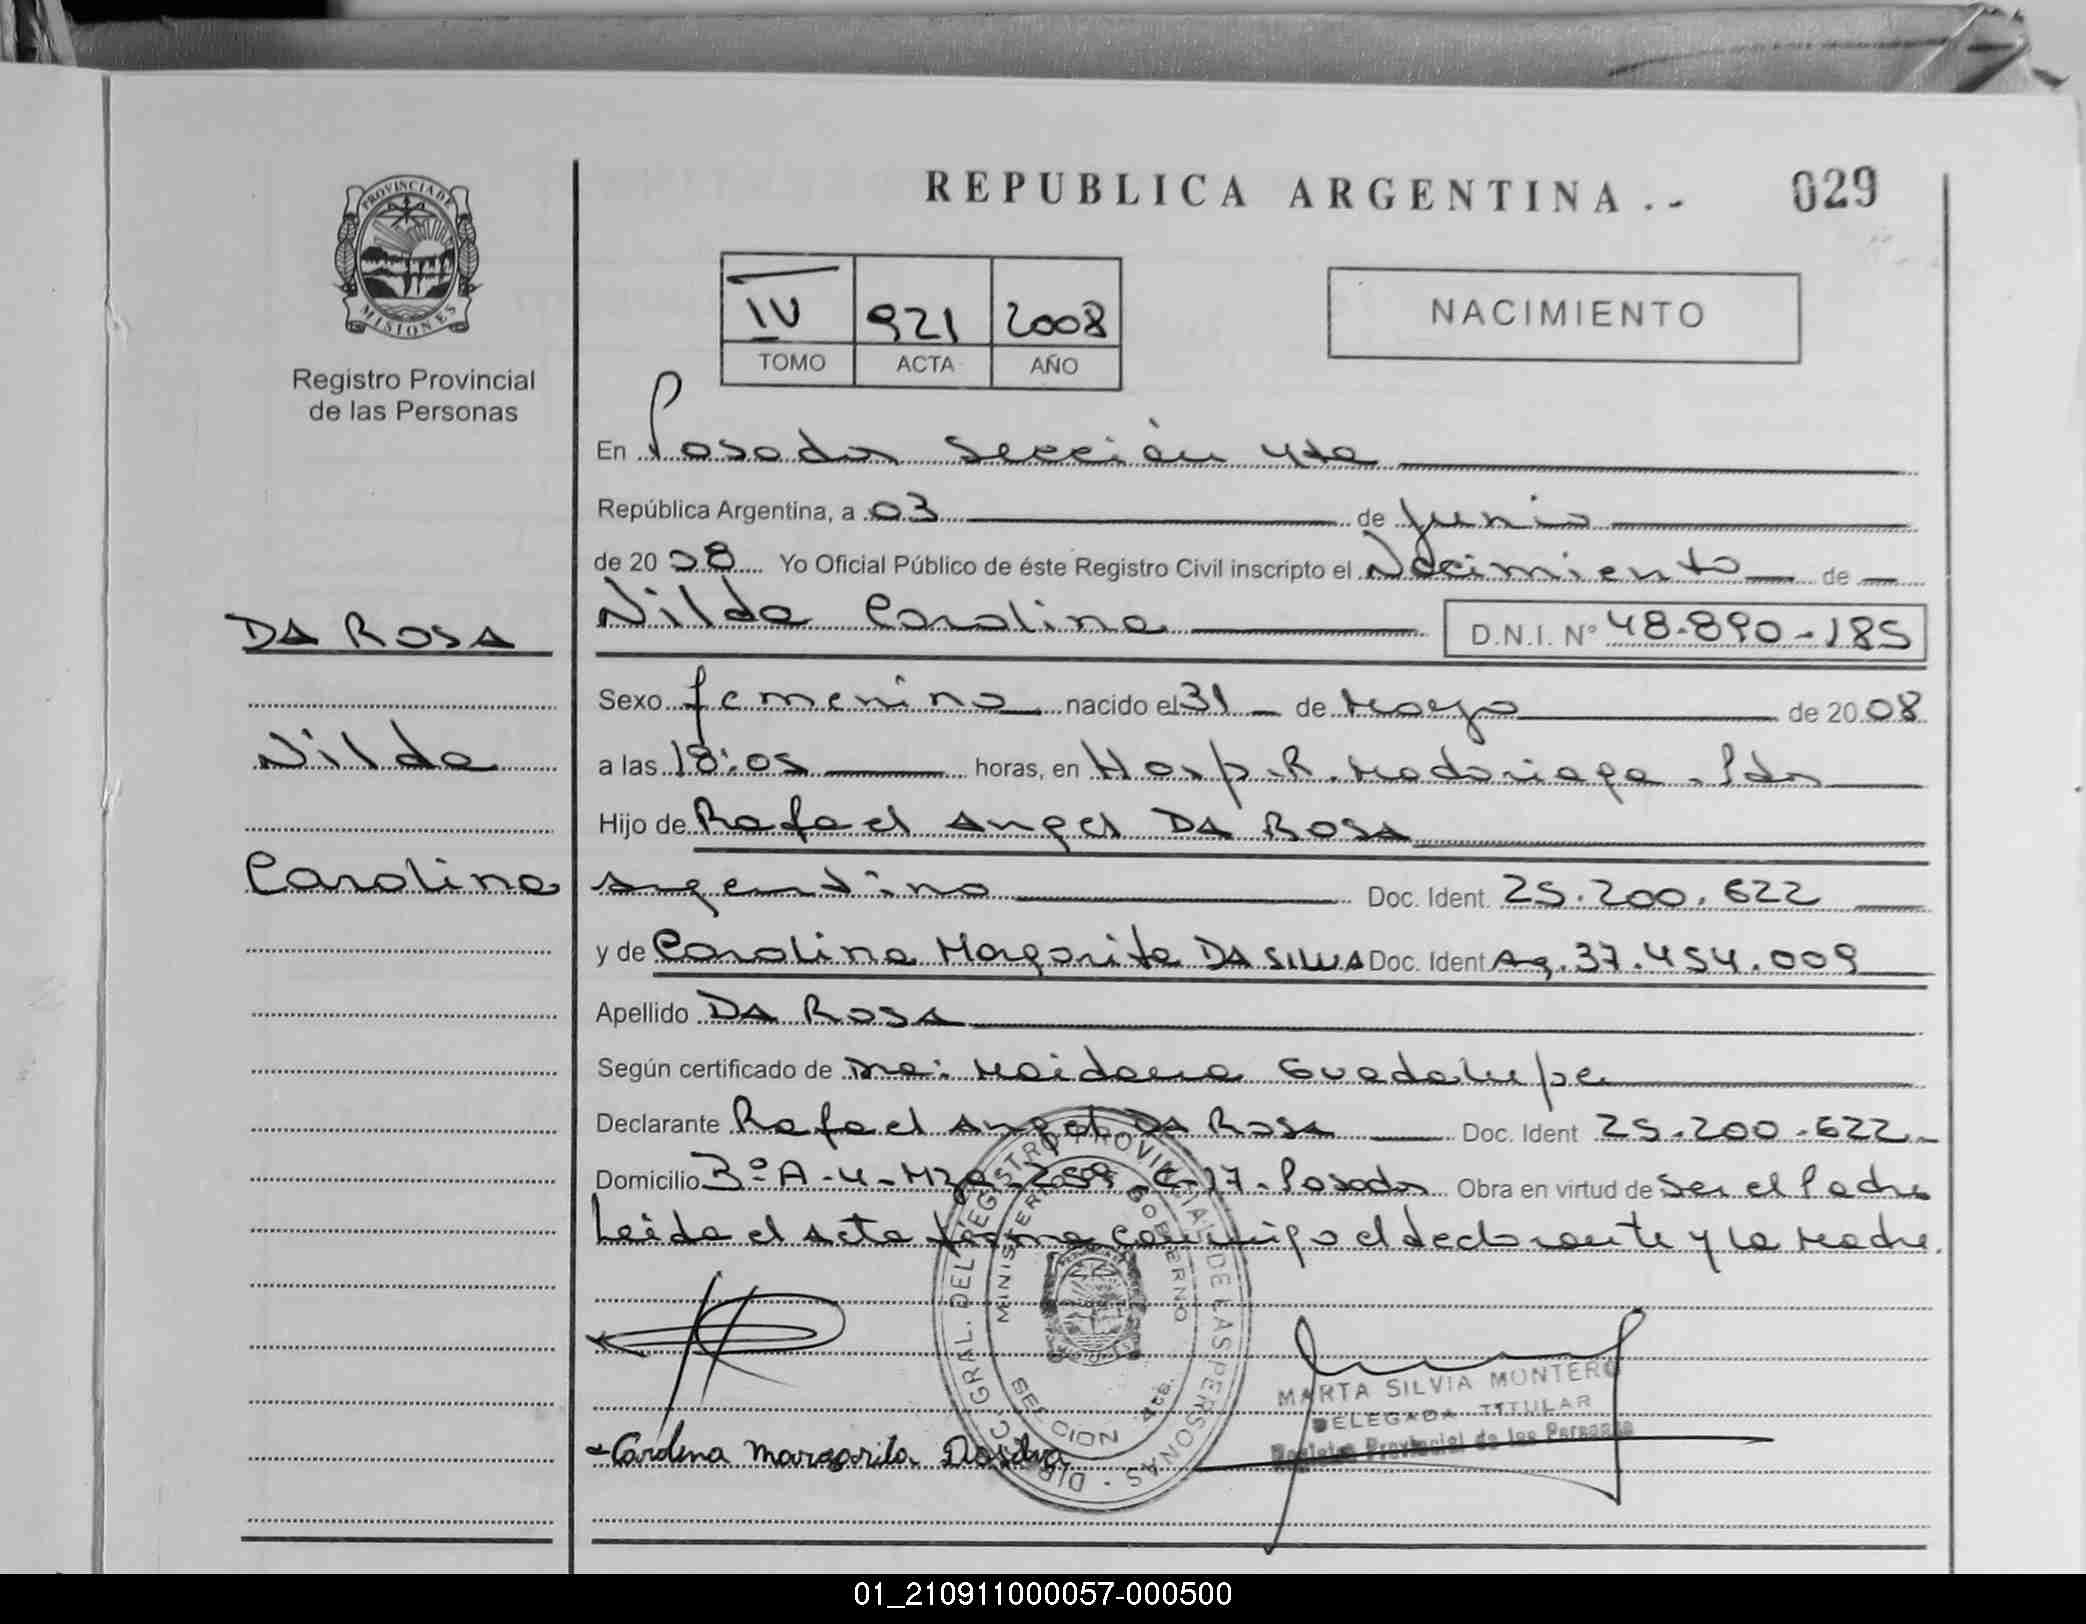 REPUBLICA ARGENTINA.-
029
PROVINCIA DE
MISIONES
Registro Provincial
de las Personas
IV 921 2008
TOMO ACTA AÑO
NACIMIENTO
En Posadas Sección 4ta
República Argentina, a 03 de Junio
de 2008 Yo Oficial Público de éste Registro Civil inscripto el Nacimiento de
DA ROSA
Nilda
Carolina
Nilda Carolina D.N.I. N° 48.890-185
Sexo femenino nacido el 31 de Mayo de 2008
a las 18:05 horas, en Hosp. R. Madariaga. Pdas
Hijo de Rafael Angel DA ROSA
Argentino Doc. Ident. 25.200.622
y de Carolina Margarita DA SILVA Doc. Ident Ag. 37.454.009
Apellido DA ROSA
Según certificado de Dra: Maidana Guadalupe
Declarante Rafael Angel DA ROSA Doc. Ident 25.200.622-
Domicilio 3º A-4-Mza 259 C-17-Posadas Obra en virtud de Ser el Padre
Leida el Acta firma conmigo el declarante y la Madre.
DIRECC. GRAL. DEL REGISTRO PROVINCIAL DE LAS PERSONAS
MINISTERIO GOBIERNO
MARTA SILVIA MONTERO
DELEGADA TITULAR
Registro Provincial de las Personas
Carolina Margarita Dasilva
01_210911000057-000500